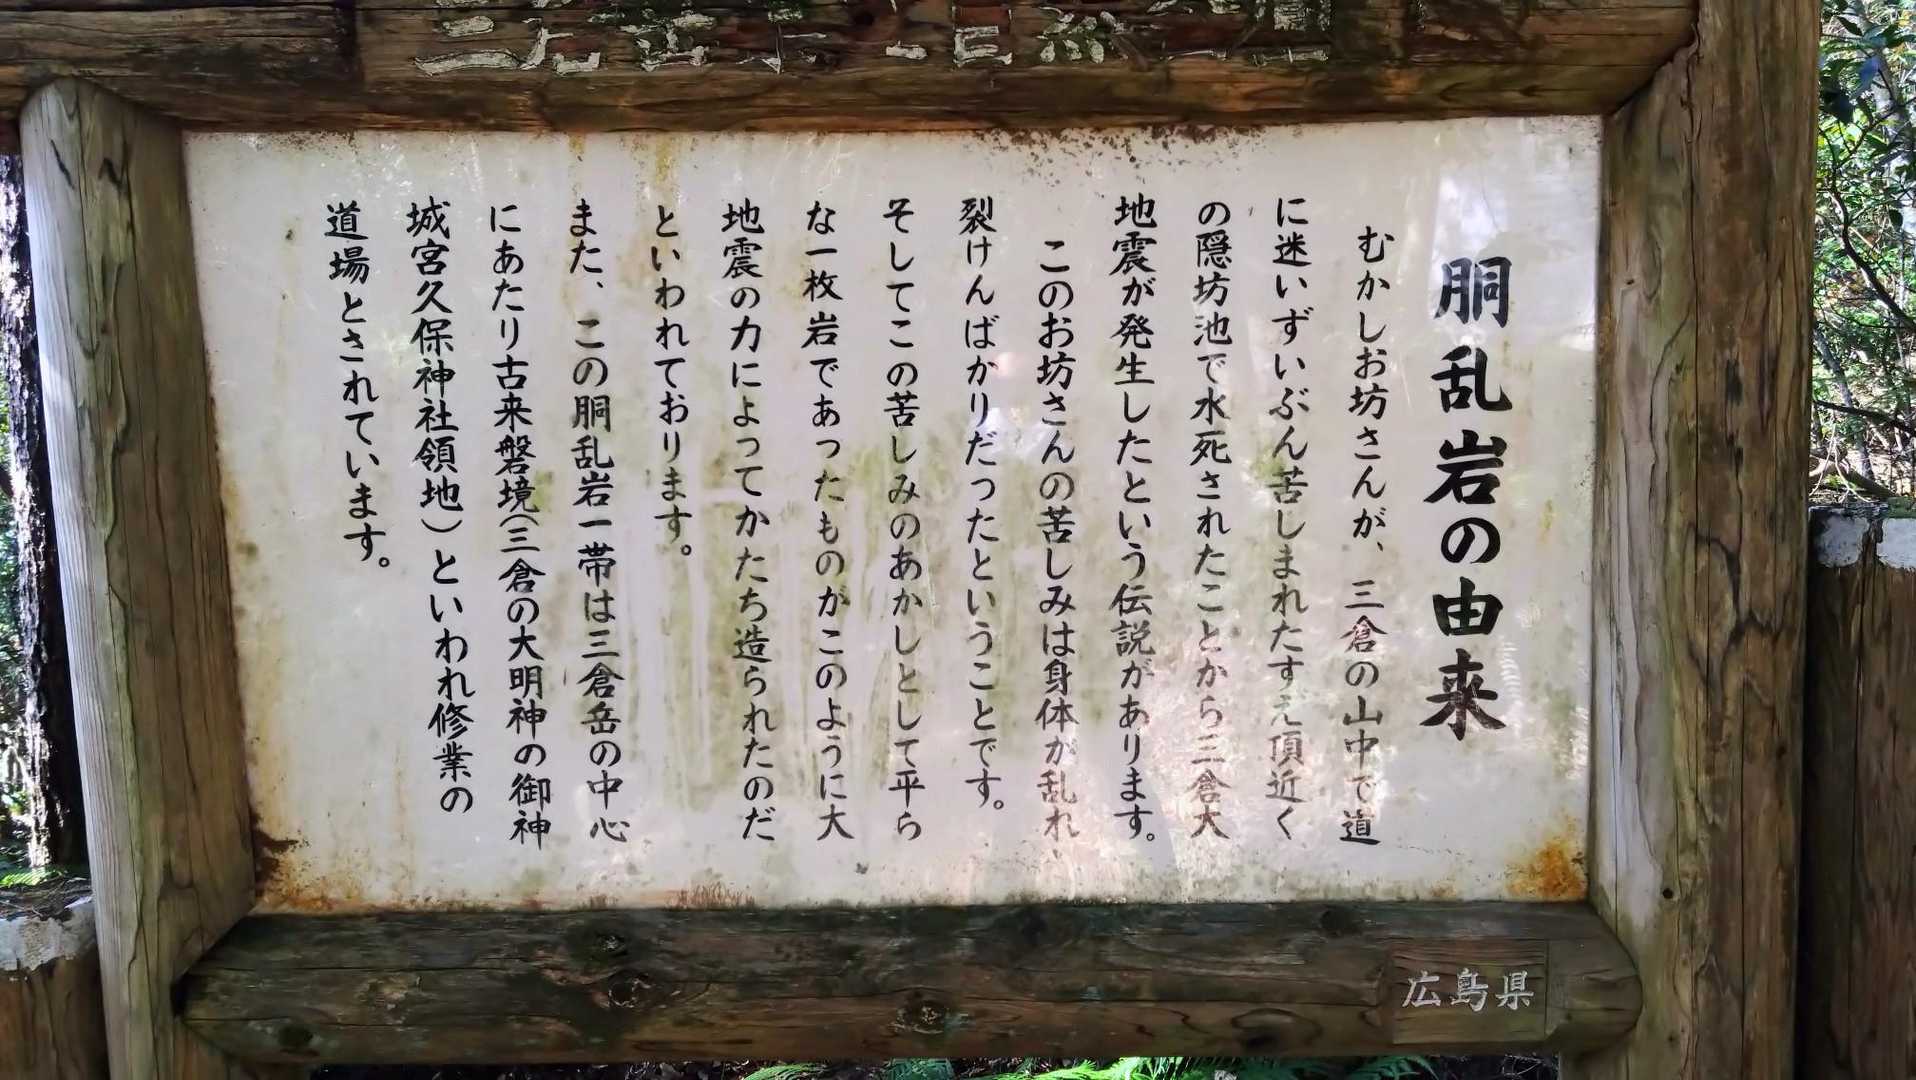 胴乱岩の由来
むかしお坊さんが、三倉の山中で道
に迷いずいぶん苦しまれたすえ頂近く
の隠坊池で水死されたことから三倉大
地震が発生したという伝説があります。
このお坊さんの苦しみは身体が乱れ、
裂けんばかりだったということです。
そしてこの苦しみのあかしとして平ら
な一枚岩であったものがこのように大
地震の力によってかたち造られたのだ
といわれております。
また、この胴乱岩一帯は三倉岳の中心
にあたり古来磐境(三倉の大明神の御神
城宮久保神社領地)といわれ修業の
道場とされています。
広島県